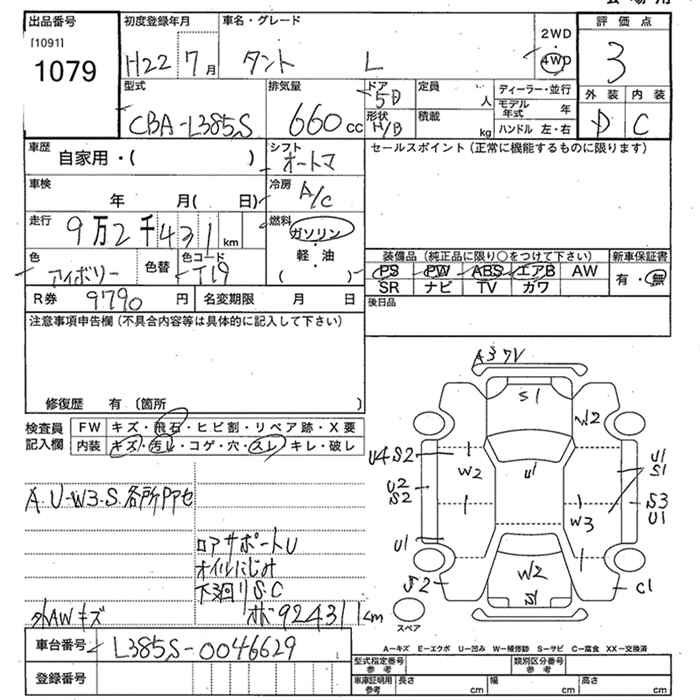 出品番号
[1091]
1079
初度登録年月
H22 7月
車名・グレード
タント L
2WD
4WD
評価点
3
外装 内装
D C
型式
CBA-L385S
排気量
660cc
ドア
5D
形状
H/B
定員
人
積載
kg
ディーラー・並行
モデル年式 年
ハンドル 左・右
車歴
自家用・( )
シフト
オートマ
セールスポイント(正常に機能するものに限ります)
車検
年 月( 日)
冷房
A/C
走行
9万2千431km
燃料
ガソリン
軽・油
( )
色
アイボリー
色替
色コード
T19
装備品(純正品に限り〇をつけて下さい)
PS PW ABS エアB AW
SR ナビ TV カワ
新車保証書
有・無
R券 9790円
名変期限 月 日
後日品
注意事項申告欄(不具合内容等は具体的に記入して下さい)
修復歴 有(箇所 )
検査員記入欄
FW キズ・飛石・ヒビ割・リペア跡・X要
内装 キズ・汚レ・コゲ・穴・スレ・キレ・破レ
A.U-W3-S.各所Pアセ
ロアサポートU
オイルにじみ
下廻りS.C
外AWキズ
ボ92431km
A3 ワV
S1
W2
U4 S2
W2
U1
U1
S1
U2
S2
W3
S3
U1
U1
S2
W2
S1
C1
スペア
車台番号
L385S-0046629
登録番号
A-キズ E-エクボ U-凹み W-補修跡 S-サビ C-腐食 XX-交換済
型式指定番号
参考
類別区分番号
参考
車庫証明用
参考
長さ cm
幅 cm
高さ cm